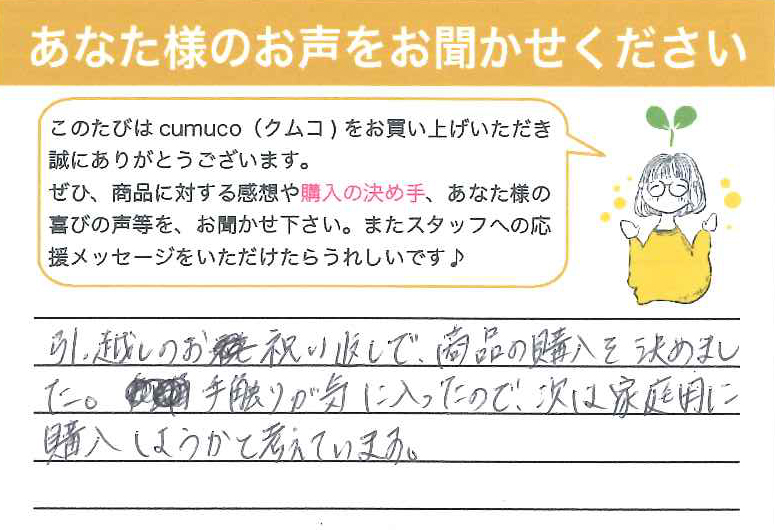 あなた様のお声をお聞かせください
このたびはcumuco（クムコ)をお買い上げいただき
誠にありがとうございます。
ぜひ、商品に対する感想や購入の決め手、あなた様の
喜びの声等を、お聞かせ下さい。またスタッフへの応
援メッセージをいただけたらうれしいです♪
引っ越しのお祝い返しで、商品の購入を決めまし
た。手触りが気に入ったので、次は家庭用に
購入しようかと考えています。